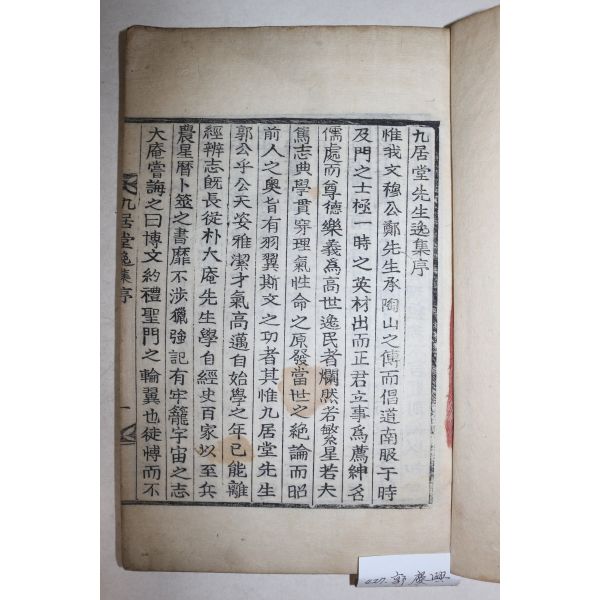 九居堂先生逸集序
惟我文穆公鄭先生承陶山之傳而倡道南服于時
及門之士極一時之英材出而正君立事爲薦紳名
儒處而尊德樂義爲高世逸民者爛然若繁星若夫
篤志典學貫穿理氣性命之原發當世之絶論而昭
前人之奧旨有羽翼斯文之功者其惟九居堂先生
郭公乎公天姿雅潔才氣高邁自始學之年已能離
經辨志旣長從朴大庵先生學自經史百家以至兵
農星曆卜筮之書靡不涉獵強記有牢籠宇宙之志
大庵嘗誨之曰博文約禮聖門之輪翼也徒博而不
九居堂逸集序
一
227. 郭